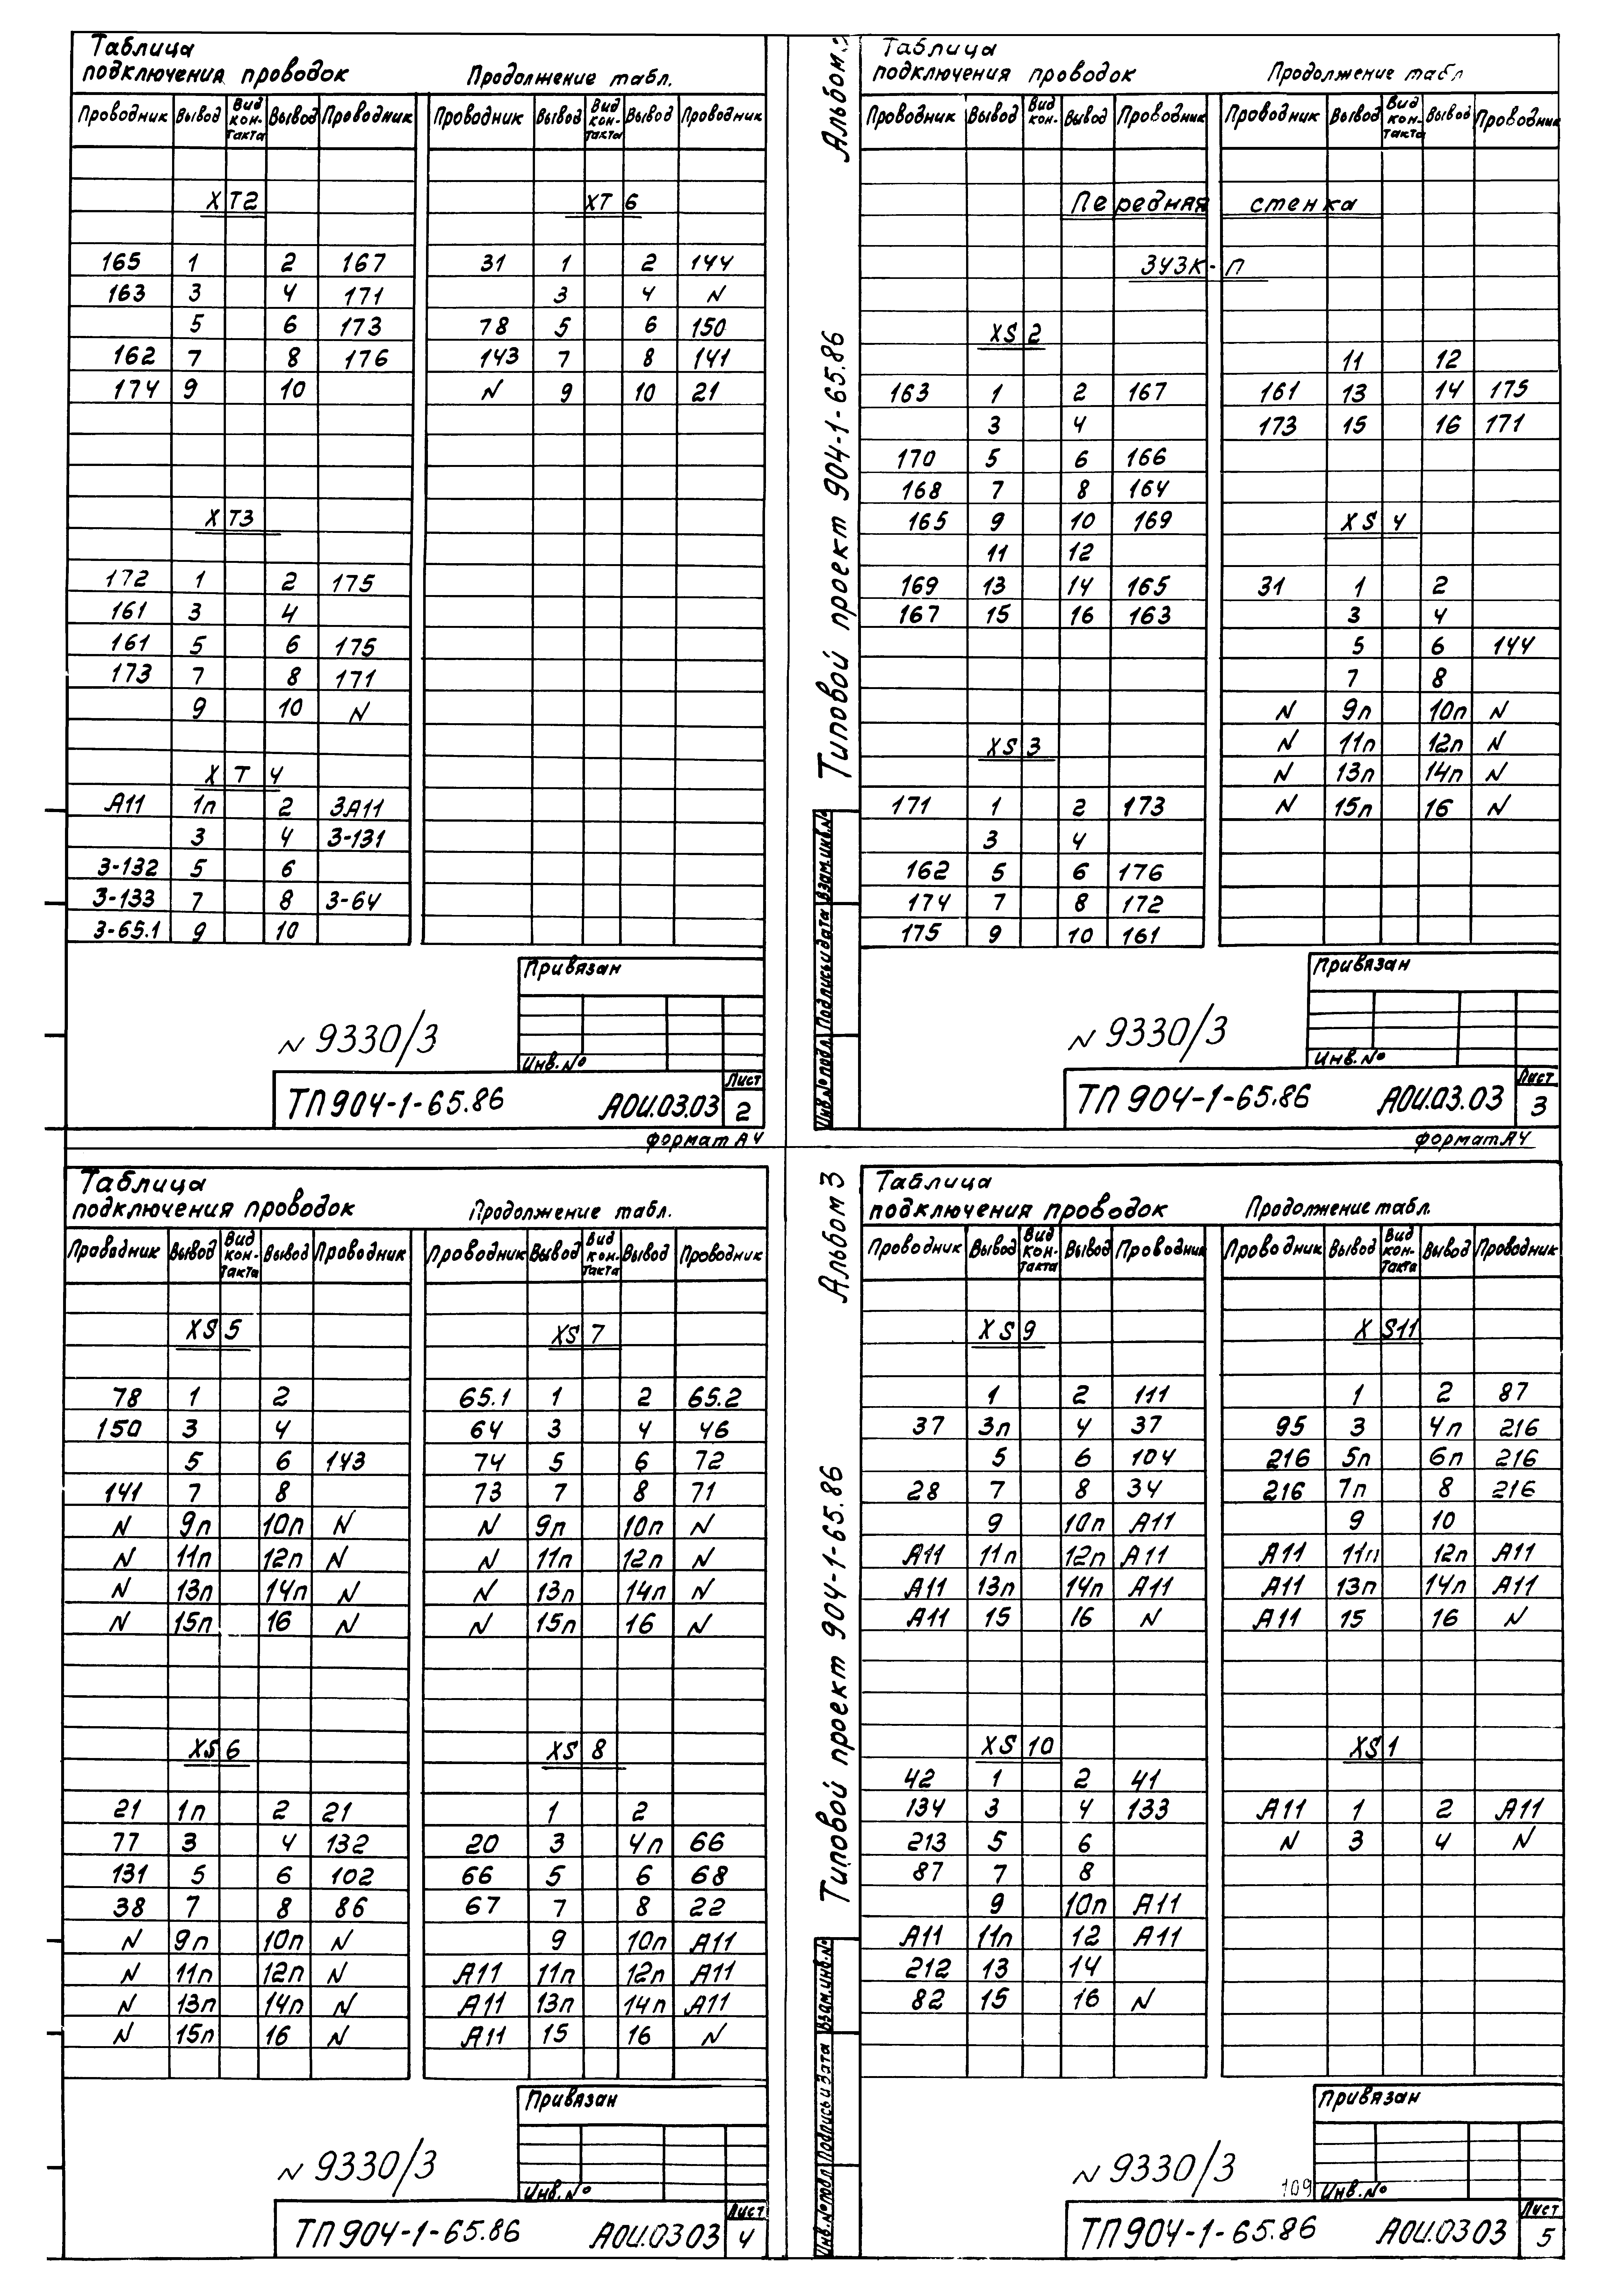 Таблица
подключения проводок Продолжение табл.
Проводник Вывод Вид контакта Вывод Проводник Проводник Вывод Вид контакта Вывод Проводник
XT2 XT 6
165 1 2 167 31 1 2 144
163 3 4 171 3 4 N
5 6 173 78 5 6 150
162 7 8 176 143 7 8 141
174 9 10 N 9 10 21
XT3
172 1 2 175
161 3 4
161 5 6 175
173 7 8 171
9 10 N
XT 4
А11 1п 2 3А11
3 4 3-131
3-132 5 6
3-133 7 8 3-64
3-65.1 9 10
Привязан
N 9330/3
Инв.№
ТП 904-1-65.86 АОИ.03.03 Лист 2
Формат А4
Альбом 3
Типовой проект 904-1-65.86
Инв.№ подл. Подпись и дата Взам.инв.№
Таблица
подключения проводок Продолжение табл
Проводник Вывод Вид кон. Вывод Проводник Проводник Вывод Вид контакта Вывод Проводник
Передняя стенка
ЗУЗК-П
XS 2
11 12
163 1 2 167 161 13 14 175
3 4 173 15 16 171
170 5 6 166
168 7 8 164
165 9 10 169 XS 4
11 12
169 13 14 165 31 1 2
167 15 16 163 3 4
5 6 144
7 8
N 9п 10п N
XS 3 N 11п 12п N
N 13п 14п N
171 1 2 173 N 15п 16 N
3 4
162 5 6 176
174 7 8 172
175 9 10 161
Привязан
N 9330/3
Инв.№
ТП 904-1-65.86 АОИ.03.03 Лист 3
Формат А4
Таблица
подключения проводок Продолжение табл.
Проводник Вывод Вид контакта Вывод Проводник Проводник Вывод Вид контакта Вывод Проводник
XS 5 XS 7
78 1 2 65.1 1 2 65.2
150 3 4 64 3 4 46
5 6 143 74 5 6 72
141 7 8 73 7 8 71
N 9п 10п N N 9п 10п N
N 11п 12п N N 11п 12п N
N 13п 14п N N 13п 14п N
N 15п 16 N N 15п 16 N
XS 6 XS 8
21 1п 2 21 1 2
77 3 4 132 20 3 4п 66
131 5 6 102 66 5 6 68
38 7 8 86 67 7 8 22
N 9п 10п N 9 10п А11
N 11п 12п N А11 11п 12п А11
N 13п 14п N А11 13п 14п А11
N 15п 16 N А11 15 16 N
Привязан
N 9330/3
Инв.№
ТП 904-1-65.86 АОИ.03 03 Лист 4
Альбом 3
Типовой проект 904-1-65.86
Инв.№ подл Подпись и дата Взам.инв.№
Таблица
подключения проводок Продолжение табл.
Проводник Вывод Вид контакта Вывод Проводник Проводник Вывод Вид контакта Вывод Проводник
XS 9 XS11
1 2 111 1 2 87
37 3п 4 37 95 3 4п 216
5 6 104 216 5п 6п 216
28 7 8 34 216 7п 8 216
9 10п А11 9 10
А11 11п 12п А11 А11 11п 12п А11
А11 13п 14п А11 А11 13п 14п А11
А11 15 16 N А11 15 16 N
XS 10 XS 1
42 1 2 41
134 3 4 133 А11 1 2 А11
213 5 6 N 3 4 N
87 7 8
9 10п А11
А11 11п 12 А11
212 13 14
82 15 16 N
Привязан
N 9330/3
109
Инв.№
ТП 904-1-65.86 АОИ.03 03 Лист 5